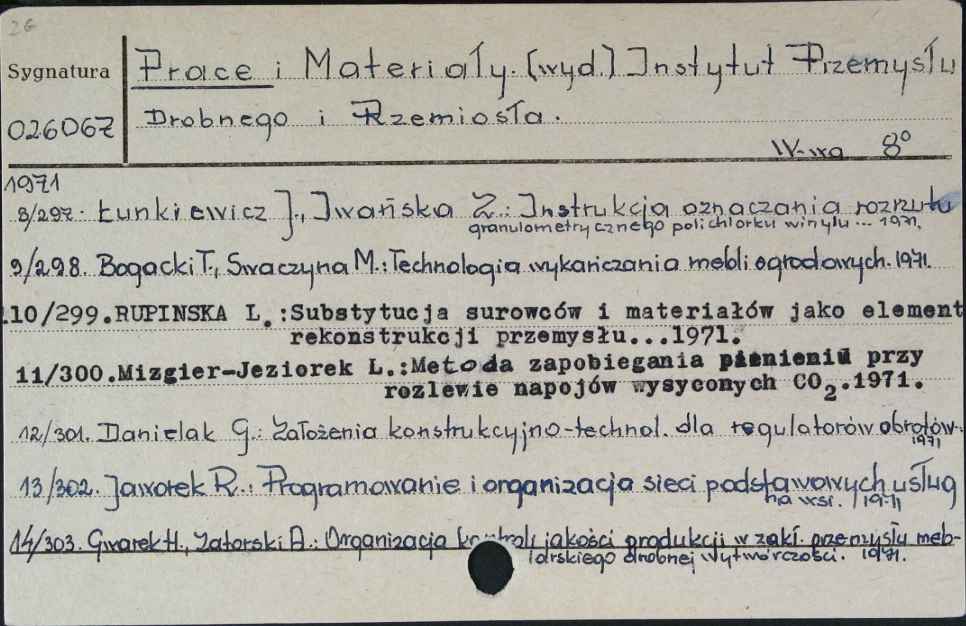 26
Sygnatura
026067
Prace i Materiały. [wyd.] Instytut Przemysłu
Drobnego i Rzemiosła.
W-wa 8°
1971
8/297. Łunkiewicz J., Iwańska Z.: Instrukcja oznaczania rozrzutu
granulometrycznego polichlorku winylu ... 1971.
9/298. Bogacki T., Swaczyna M.: Technologia wykańczania mebli ogrodowych. 1971.
10/299.RUPINSKA L.:Substytucja surowców i materiałów jako element
rekonstrukcji przemysłu...1971.
11/300.Mizgier-Jeziorek L.:Metoda zapobiegania pienieniu przy
rozlewie napojów wysyconych CO2.1971.
12/301. Danielak G.: Założenia konstrukcyjno-technol. dla regulatorów obrotów.
1971
13/302. Jaworek R.: Programowanie i organizacja sieci podstawowych usług
na wsi. 1971
14/303. Gwarek H., Zatorski A.: Organizacja kontroli jakości produkcji w zakł. przemysłu meb-
larskiego drobnej wytwórczości. 1971.